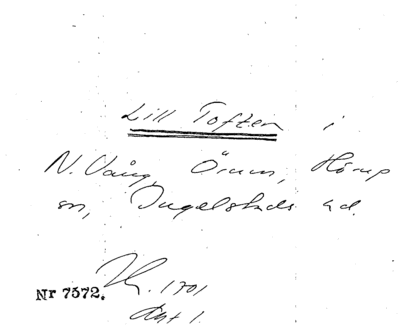 Lill Toften i
N. Vång, Örum, Hörup
sn, Ingelstads hd.
Nr 7572. 1701
Akt 1.